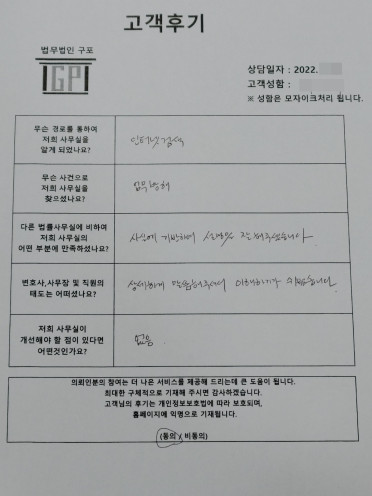 고객후기
법무법인 구포
GP
상담일자 : 2022.
고객성함 :
※ 성함은 모자이크처리 됩니다.
무슨 경로를 통하여
저희 사무실을
알게 되었나요?
인터넷 검색
무슨 사건으로
저희 사무실을
찾으셨나요?
업무방해
다른 법률사무실에 비하여
저희 사무실의
어떤 부분에 만족하셨나요?
사실에 기반하여 설명을 잘 해주셨습니다
변호사,사무장 및 직원의
태도는 어떠셨나요?
상세하게 말씀해주셔서 이해하기가 쉬웠습니다
저희 사무실이
개선해야 할 점이 있다면
어떤것인가요?
없음
의뢰인분의 참여는 더 나은 서비스를 제공해 드리는데 큰 도움이 됩니다.
최대한 구체적으로 기재해 주시면 감사하겠습니다.
고객님의 후기는 개인정보보호법에 따라 보호되며,
홈페이지에 익명으로 기재됩니다.
(동의 / 비동의)